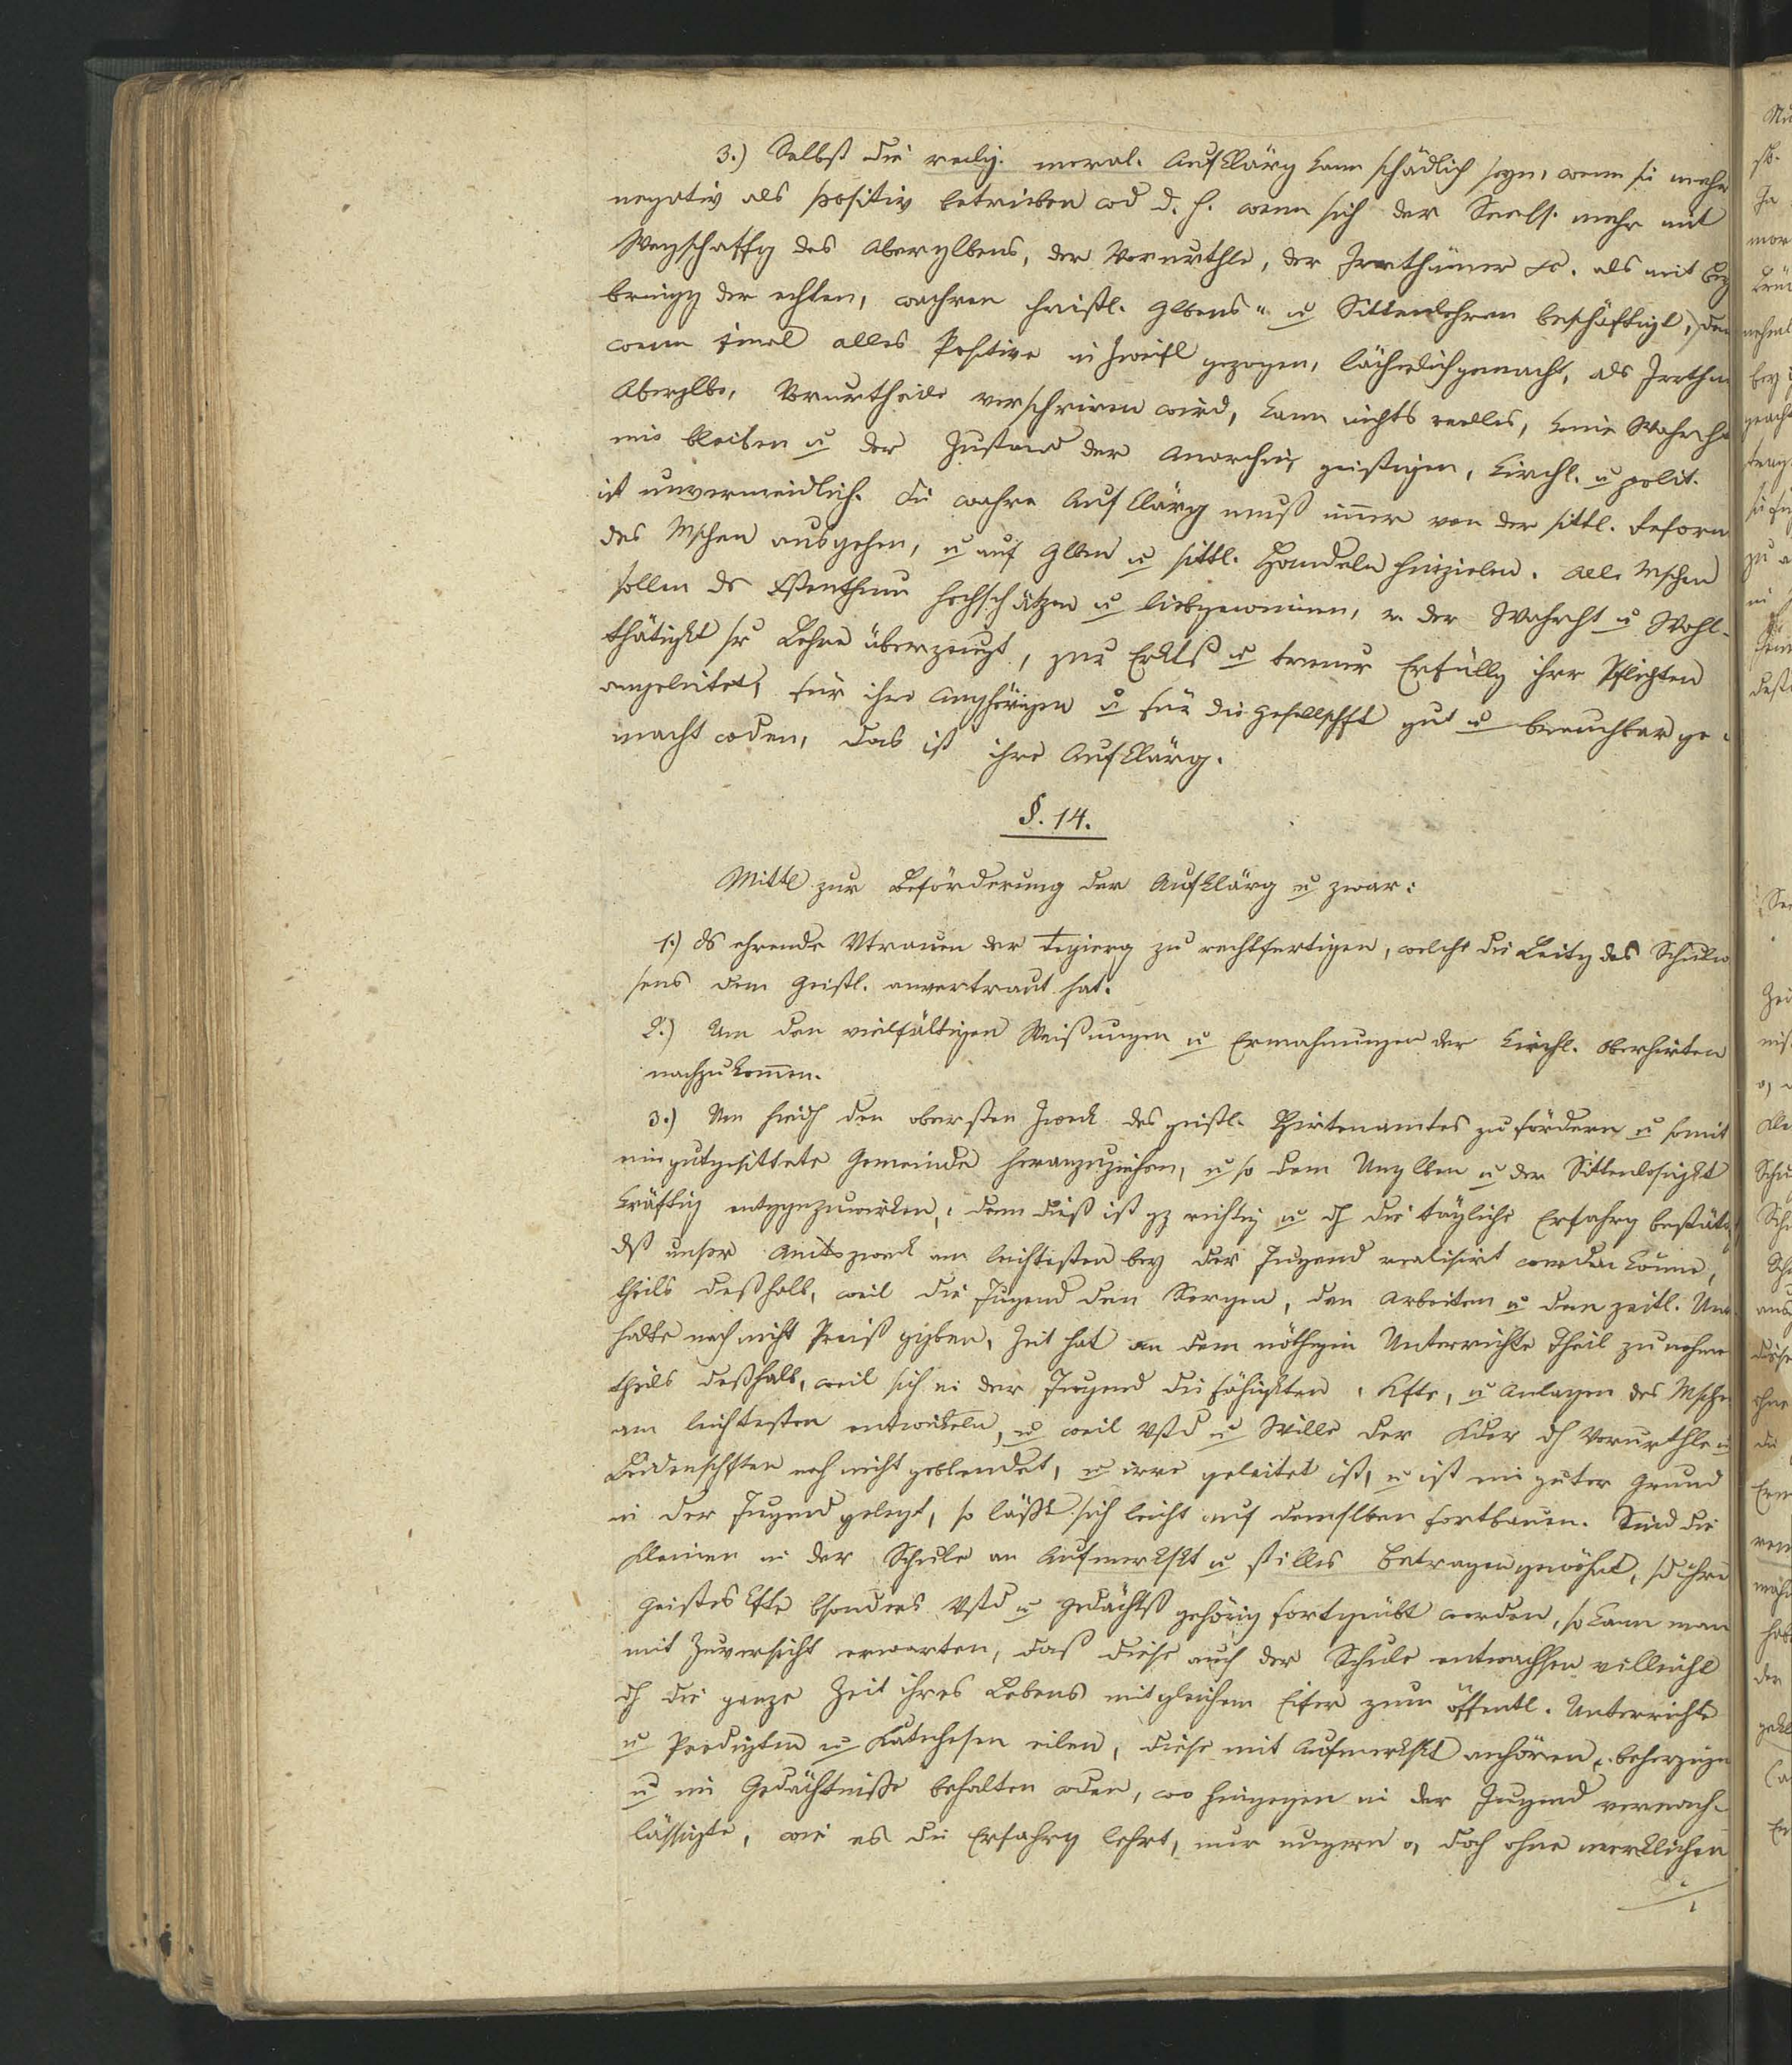 3.) Selbst die relig. moral. Aufklärg kann schädlich seyn, wenn sie mehr
negativ als positiv betrieben wd d. h. wenn sich der Seels. mehr mit
Wegschaffg des Aberglbens, der Vorurthle, der Irrthümer &c. als mit Bey
bringg der echten, wahren christl. Glbens- u Sittenlehren beschäftigt, den
wenn einml alles Positive in Zweifl gezogen, lächerlich gemacht, als Irrthm
Aberglbe, Vorurtheile verschrieen wird, kann nichts reelles, keine Wahrht
mehr bleiben u der Zustand der Anarchie, geistigen, kirchl. u polit.
ist unvermeidlich. Die wahre Aufklärg muß immer von der sittl. Reform
des Mschen ausgehen, u auf Glben u sittl. Handeln hinzielen. Alle Mschen
sollen ds Xstenthum hochschätzen u liebgewinnen, v. der Wahrht u Wohl-
thätigkt sr Lehre überzeugt, zur Erktß u treuer Erfüllg ihrer Pflichten
angeleitet, für ihre Anghörigen u für die Gesellschft gut u brauchbar ge-
macht wden, das ist ihre Aufklärg.
§. 14.
Mittl zur Beförderung der Aufklärg u zwar:
1.) Ds ehrende Vtrauen der Regierg zu rechtfertigen, welche die Leitg des Schulw
sens dem Geistl. anvertraut hat.
2.) Um den vielfältigen Weisungen u Ermahnungen der kirchl. Oberhirten
nachzukommen.
3.) Um hiedh den obersten Zweck des geistl. Hirtenamtes zu fördern u somit
eine gutgesittete Gemeinde heranzuziehen, u so dem Unglben u der Sittenlosigkt
kräftig entggenzuwirken, denn dieß ist gz richtig u dh die tägliche Erfahrg bestät
dß unser Amtszweck am leichtesten bey der Jugend realisirt werden könne,
theils deßhalb, weil die Jugend den Sorgen, den Arbeiten u den zeitl. Unter
halte noch nicht Preiß ggben, Zeit hat an dem nöthigen Unterrichte Theil zu nehme
theils deßhalb, weil sich in der Jugend die Fähigkten, Kfte, u Anlagen des Msche
am leichtesten entwickeln, u weil Vstd u Wille der Kder dh Vorurthle u
Leidenschften noch nicht geblendet, u irre geleitet ist, u ist ein guter Grund
in der Jugend gelegt, so läßt sich leicht auf demselben fortbauen. Sind die
Kleinen in der Schule an Aufmerkskt u stilles Betragen gewöhnt, sd ihre
Geisteskfte bsonders Vstd u Gedächtß gehörig fortgeübt worden, so kann man
mit Zuversicht erwarten, daß diese auch der Schule entwachsen vielleicht
dh die ganze Zeit ihres Lebens mit gleichem Eifer zum öffentl. Unterrichte
u Predigten u Katechesen eilen, diese mit Aufmerkskt anhören, beherzigen
u im Gedächtniße behalten wden, wo hingegen in der Jugend vernach-
läßigte, wie es die Erfahrg lehrt, nur ungern o, doch ohne merklichen